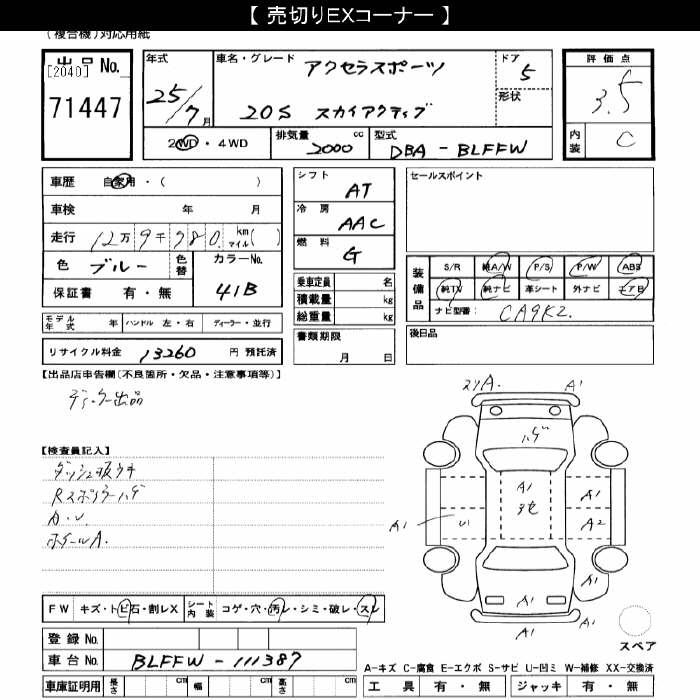 【 売切りEXコーナー 】
(複合機)対応用紙
出品No.
[2040]
71447
年式
25/7月
車名・グレード
アクセラスポーツ
20S スカイアクティブ
ドア
5
形状
評価点
3.5
内装
C
2WD・4WD
排気量
2000 cc
型式
DBA-BLFFW
車歴 自家用・( )
車検 年 月
走行 12万9千980 km マイル( )
色 ブルー
色替
カラーNo.
41B
保証書 有・無
モデル年式 年 ハンドル 左・右 ディーラー・並行
リサイクル料金 13260 円 預託済
シフト
AT
冷房
AAC
燃料
G
乗車定員 名
積載量 kg
総重量 kg
書類期限
月 日
セールスポイント
装備品
S/R 純A/W P/S P/W ABS
純TV 純ナビ 革シート 外ナビ エアB
ナビ型番: CA9K2.
後日品
【出品店申告欄(不良箇所・欠品・注意事項等)】
ディーラー出品
【検査員記入】
ダッシュ板ウキ
Rスポイラーハゲ
A.U.
ホイールA.
FW キズ・トビ石・割レX
シート内装 コゲ・穴・汚レ・シミ・破レ・スレ
登録No.
車台No. BLFFW-111387
車庫証明用 長さ cm 幅 cm 高さ cm
A1
ハゲ
A1
A1
A1
A1
U1
A2
A1
A1
A1
スペア
A-キズ C-腐食 E-エクボ S-サビ U-凹ミ W-補修 XX-交換済
工具 有・無 ジャッキ 有・無